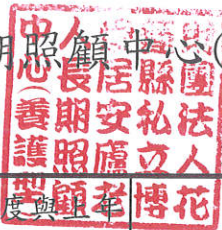 期照顧中心(
團法人花
縣私立博
居安廬老
人長期照顧
中心(善護型
度與上年